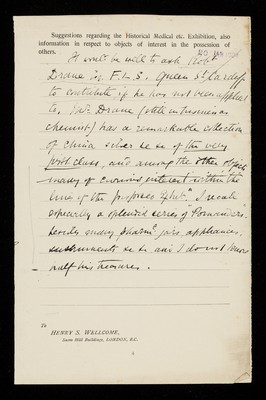 Suggestions regarding the Historical Medical etc. Exhibition, also
information in respect to objects of interest in the possession of
others.
It will be well to ask Robt
Drane Esq. F.L.S. Queen St Cardiff
to contribute if he has not been applied
to. Mr. Drane (
chemist) has a remarkable collection
of China silver &c &c of the very
first class, and among the other objects
many of interest within the
lines of the proposed Exhibn I recall
especially a splendid series of "Pomanders"
many pharml jars appliances,
instruments &c &c and I do not know
half his treasures.
To
HENRY S. WELLCOME,
Snow Hill Buildings, LONDON, E.C.